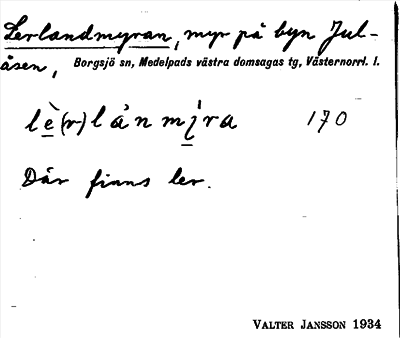 Lerlandmyran, myr på byn Jul-
åsen, Borgsjö sn, Medelpads västra domsagas tg, Västernorrl. l.
lè(r)lánmíra 170
Där finns ler.
VALTER JANSSON 1934